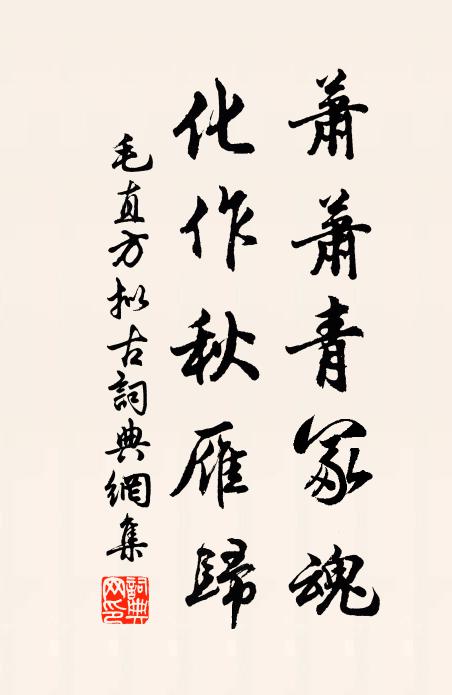 蕭蕭青冢魂
化作秋雁歸
毛直方拟古詞典網集
詞典网印